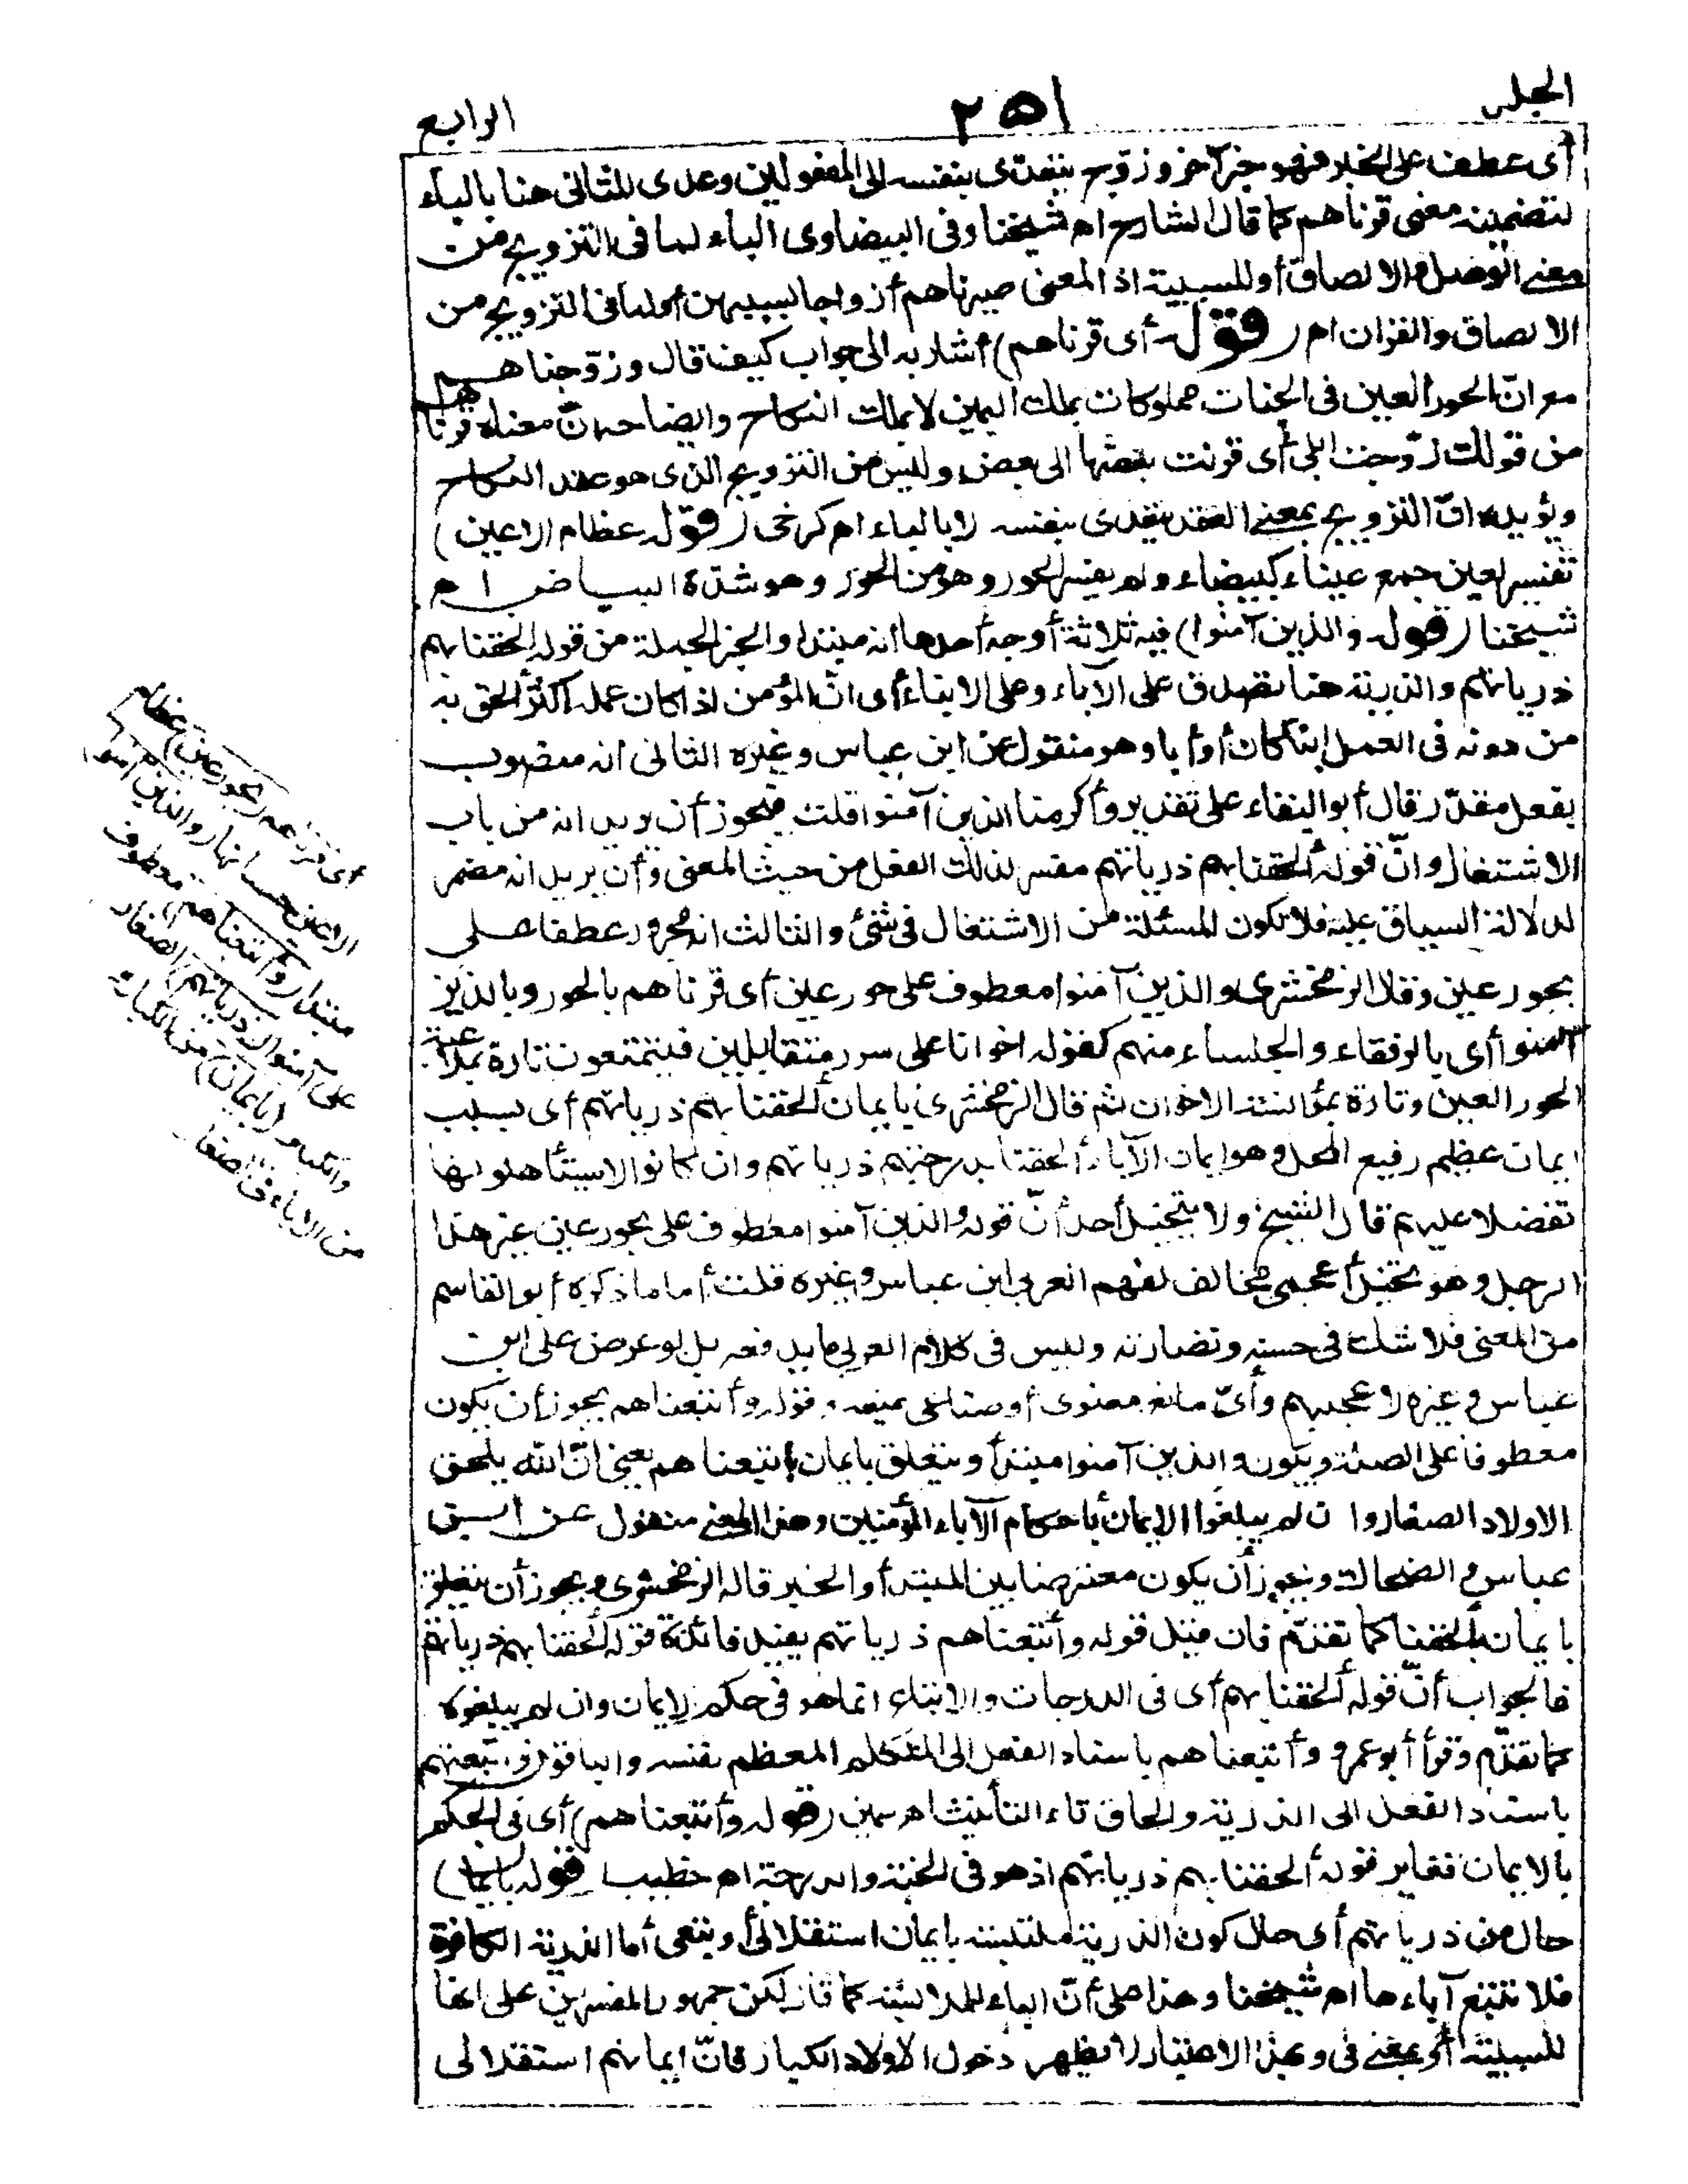 الجلد
٢٥١
الرابع
أى عطف على الخبر فهو خبر آخر وزوّج يتعدّى بنفسه الى المفعولين وعدى للثانى هنا بالباء
لتضمينه معنى قرناهم كما قال الشارح اه شيخنا وفى البيضاوى الباء لما فى التزويج من
معنى الوصل والالصاق أو للسببية اذ المعنى صيرناهم أزواجا بسببهن أو لما فى التزويج من
الالصاق والقران اه (قوله أى قرناهم) أشار به الى جواب كيف قال وزوّجناهم
مع انّ الحور العين فى الجنات مملوكات بملك اليمين لا بملك النكاح وايضاحه انّ معناه قرناهم
من قولك زوّجت ابلى أى قرنت بعضها الى بعض وليس من التزويج الذى هو عقد النكاح
ويؤيده انّ التزويج بمعنى العقد يتعدى بنفسه لا بالباء اه كرخى (قوله عظام الاعين)
تفسير لعين جمع عيناء كبيضاء ولم يفسر الحور وهو من الحور وهو شدة البياض اه
شيخنا (قوله والذين آمنوا) فيه ثلاثة أوجه أحدها انه مبتدأ والخبر الجملة من قوله ألحقنا بهم
ذرياتهم والذرية هنا تصدق على الآباء وعلى الابناء أى انّ المؤمن اذا كان عمله أكثر ألحق به
من دونه فى العمل ابنا كان أو أبا وهو منقول عن ابن عباس وغيره الثانى انه منصوب
بفعل مقدّر قال أبو البقاء على تقدير وأكرمنا الذين آمنوا قلت فيجوز أن يريد انه من باب
الاشتغال وانّ قوله ألحقنا بهم ذرياتهم مفسر لذلك الفعل من حيث المعنى وأن يريد انه مضمر
لدلالة السياق عليه فلا تكون المسئلة من الاشتغال فى شئ والثالث انه مجرور عطفا على
بحور عين وقال الزمخشرى والذين آمنوا معطوف على حور عين أى قرناهم بالحور وبالذين
آمنوا أى بالرفقاء والجلساء منهم كقوله اخوانا على سرر متقابلين فيتمتعون تارة بملاعبة
الحور العين وتارة بمؤانسة الاخوان ثم قال الزمخشرى بايمان ألحقنا بهم ذرياتهم أى بسبب
ايمان عظيم رفيع المحل وهو ايمان الآباء ألحقنا بدرجتهم ذرياتهم وان كانوا لا يستأهلونها
تفضلا عليهم قال الشيخ ولا يتخيل أحد أنّ قوله والذين آمنوا معطوف على بحور عين غير هذا
الرجل وهو تخيل أعجمى مخالف لفهم العربى ابن عباس وغيره قلت أما ما ذكره أبو القاسم
من المعنى فلا شك فى حسنه ونضارته وليس فى كلام العربى ما يدفعه بل لو عرض على ابن
عباس وغيره لأعجبهم وأىّ مانع معنوى أو صناعى يمنعه وقوله وأتبعناهم يجوز أن يكون
معطوفا على الصلة ويكون والذين آمنوا مبتدأ ويتعلق بايمان باتبعناهم يعنى انّ الله يلحق
الاولاد الصغار وان لم يبلغوا الايمان بأحكام الآباء المؤمنين وهذا المعنى منقول عن ابن
عباس والضحاك ويجوز أن يكون معترضا بين المبتدأ والخبر قاله الزمخشرى ويجوز أن يتعلق
بايمان بألحقنا كما تقدّم فان قيل قوله وأتبعناهم ذرياتهم يفيد فائدة قوله ألحقنا بهم ذرياتهم
فالجواب أنّ قوله ألحقنا بهم أى فى الدرجات والاتباع انما هو فى حكم الايمان وان لم يبلغوه
كما تقدّم وقرأ أبو عمرو وأتبعناهم باسناد الفعل الى المتكلم المعظم نفسه والباقون واتبعتهم
باسناد الفعل الى الذرية والحاق تاء التأنيث اه سمين (قوله وأتبعناهم) أى فى الحكم
بالايمان فغاير قوله ألحقنا بهم ذرياتهم اذ هو فى الجنة والدرجة اه خطيب (قوله بايمان)
حال من ذرياتهم أى حال كون الذرية ملتبسة بايمان استقلالى أو تبعى أما الذرية الكافرة
فلا تتبع آباءها اه شيخنا وهذا على أنّ الباء للملابسة كما قال لكن جمهور المفسرين على انها
للسببية أو بمعنى فى وبهذا الاعتبار لا يظهر دخول الاولاد الكبار فانّ ايمانهم استقلالى
أى قرناهم (بحور عين) عظام
الاعين حسانها (والذين آمنوا)
مبتدأ (وأتبعناهم) معطوف
على آمنوا (ذرياتهم) الصغار
والكبار (بايمان) من الكبار و
من الآباء فى الصغار